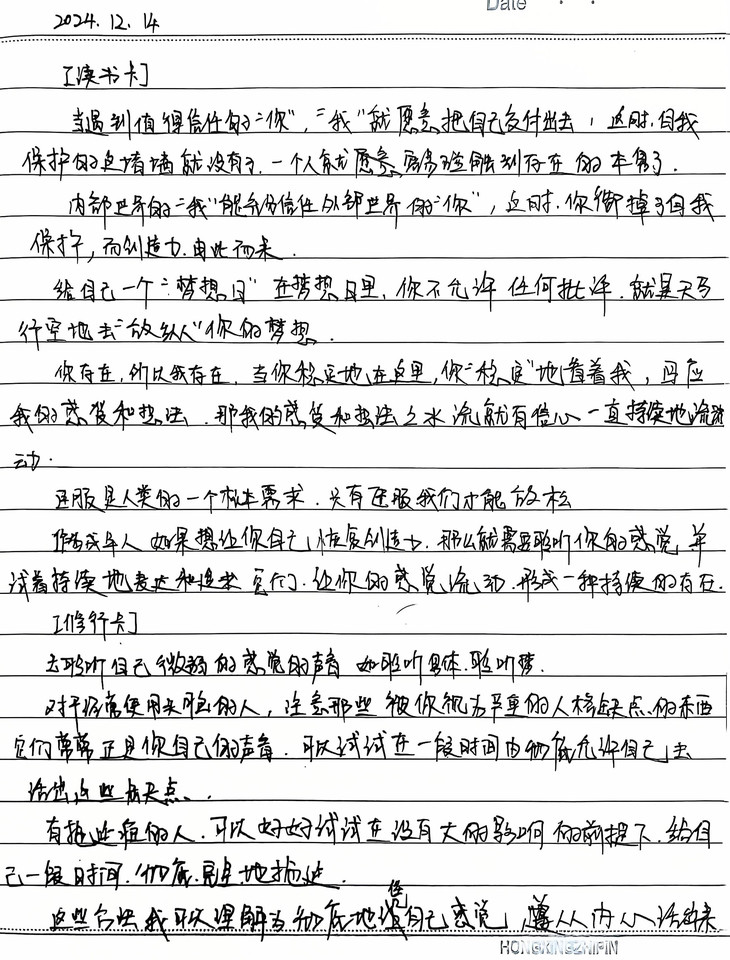 Date
2024.12.14
[读书卡]
当遇到值得信任的“你”,“我”就愿意把自己交付出去,这时,自我
保护的这堵墙就没有了,一个人就愿意展碰触到存在的本身了.
内部世界的“我”能充分信任外部世界的“你”,这时,你卸掉了自我
保护,而创造力由此而来.
给自己一个“梦想日”在梦想日里,你不允许任何批评.就是天马
行空地去“放纵”你的梦想.
你存在,所以我存在.当你稳定地在这里,你“稳定”地看着我,回应
我的感觉和想法.那我的感觉和想法之水流就有信心一直持续地流
动.
臣服是人类的一个根本需求.只有臣服我们才能放松
作为成年人如果想让你自己恢复创造力.那么就需要聆听你的感觉并
试着持续地表达和追求它们.让你的感觉流动.形成一种持续的存在.
[修行卡]
去聆听自己微弱的感觉的声音 如聆听身体.聆听梦.
对于经常使用头脑的人,注意那些被你视为严重的人格缺点的东西
它们常常正是你自己的声音.可以试试在一段时间内彻底允许自己去
活出这些缺点.
有拖延症的人.可以好好试试在没有大的影响的前提下.给自
己一段时间.彻底.完全地拖延.
这些办法我可以理解为彻底地信自己感觉,遵从内心活出来
HONGXINGZHIPIN